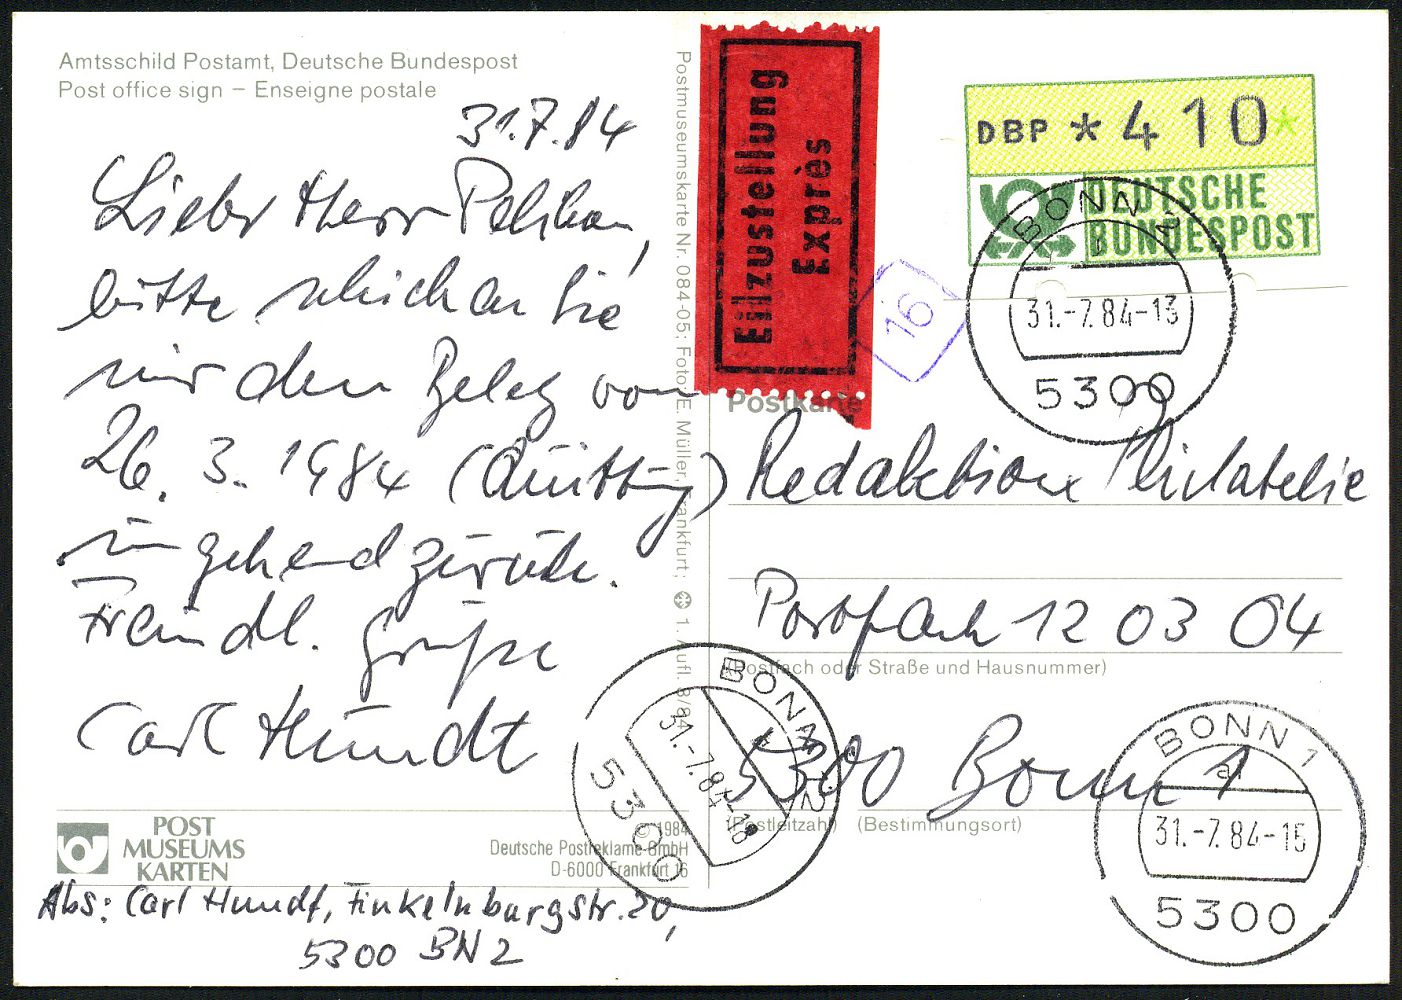 Amtsschild Postamt, Deutsche Bundespost
Post office sign – Enseigne postale
31.7.84
Lieber Herr Pelikan,
bitte schicken Sie
mir den Beleg vom
26.3.1984 (Quittung)
umgehend zurück.
Freundl. Grüße
Carl Hundt
POST
MUSEUMS
KARTEN
© 1984
Deutsche Postreklame GmbH
D-6000 Frankfurt 16
Abs: Carl Hundt, Finkelnburgstr. 20,
5300 BN 2
Postmuseumskarte Nr. 084-05; Foto: E. Müller, Frankfurt; 1. Aufl. 3/84
Eilzustellung
Exprès
16
DBP *410*
DEUTSCHE
BUNDESPOST
BONN
31.-7.84-13
5300
Postkarte
Redaktion Philatelie
Postfach 12 03 04
(Postfach oder Straße und Hausnummer)
5300 Bonn 1
(Postleitzahl) (Bestimmungsort)
BONN 12
31.-7.84-18
5300
BONN 1
31.-7.84-15
5300